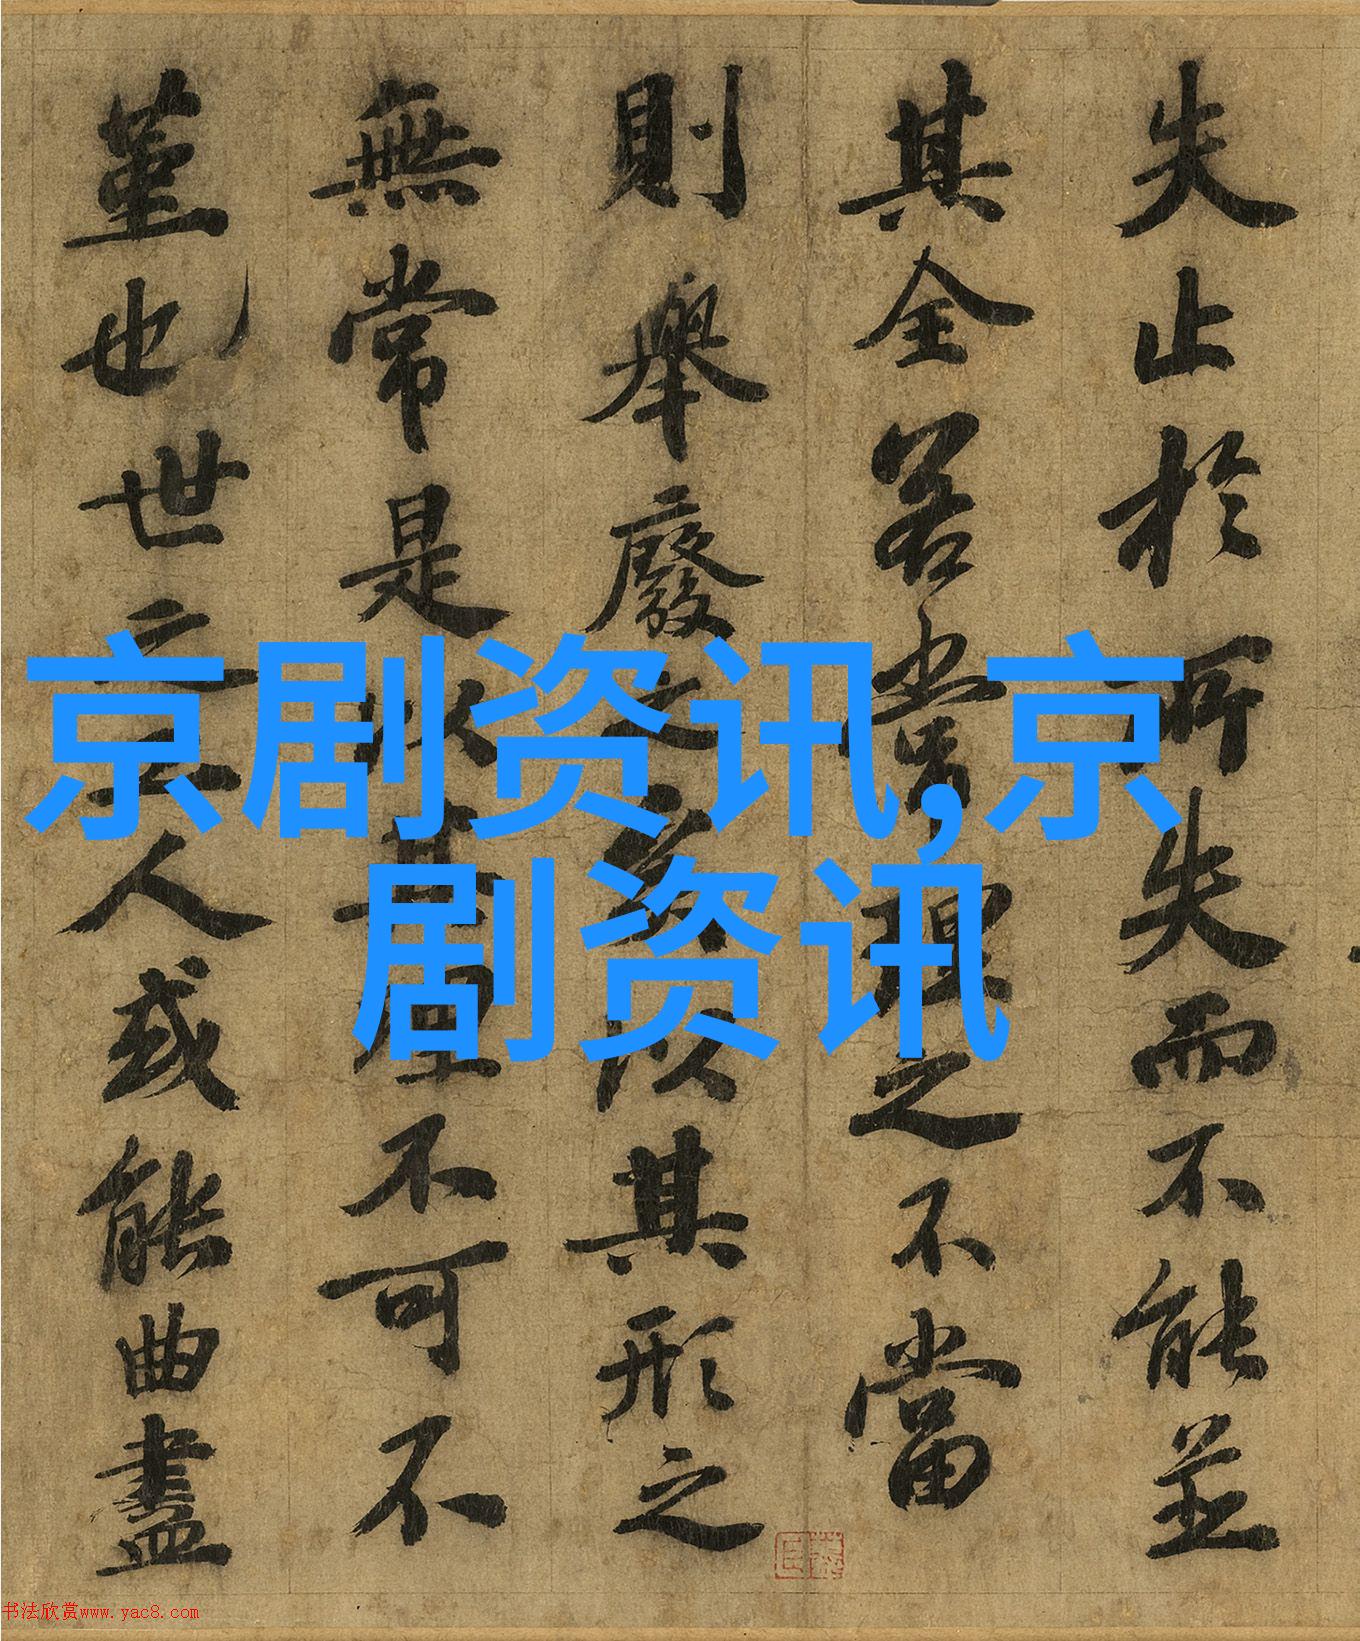 失止於所失而不能並
其全若常理之不當
則舉廢之矣以其形之
無常是以其理不可不
堇也世之工人或能曲盡
京剧资讯,京
剧资讯
书法欣赏www.yac8.com